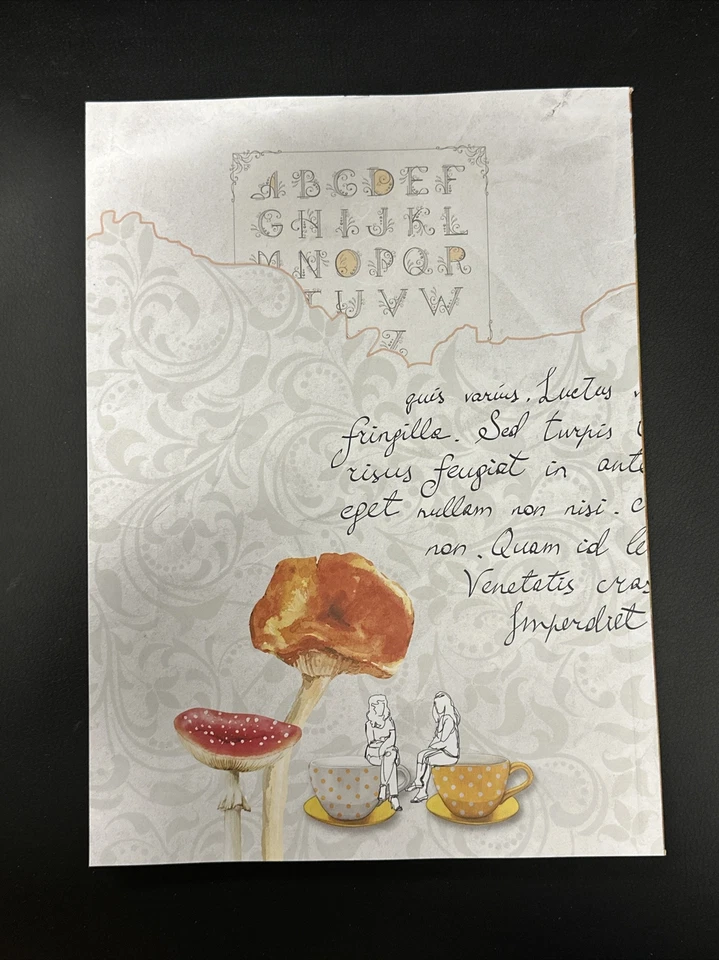 A B C D E F
G H I J K L
M N O P Q R
T U V W
Z
quis varius. Luctus
fringilla. Sed turpis
risus feugiat in ante
eget nullam non nisi. c
non. Quam id le
Venetatis cras
Imperdiet